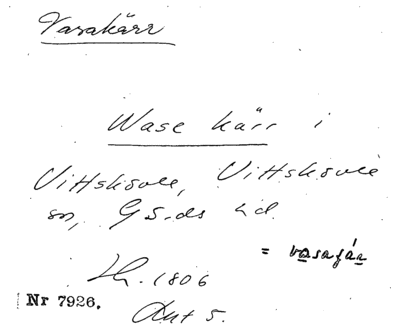 Vasakärr
Wase kärr i
Vittskövle, Vittskövle
sn, G S.-ds hd.
= vasaɟáɹ
Lh. 1806
Nr 7926.
Akt 5.